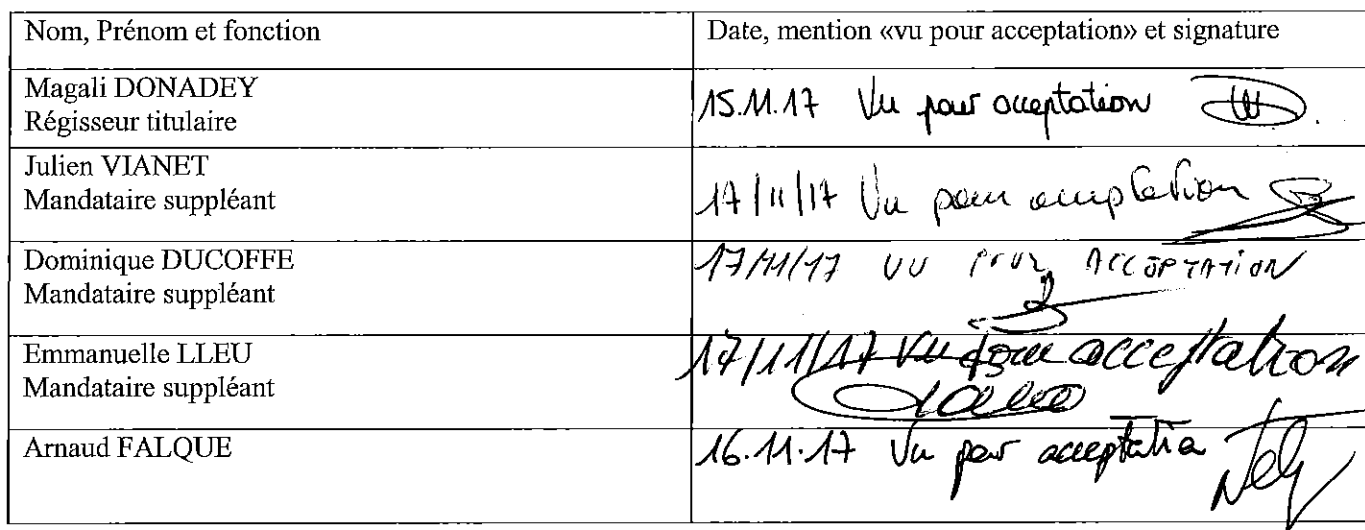 Nom, Prénom et fonction
Date, mention «vu pour acceptation» et signature
Magali DONADEY
Régisseur titulaire
15.11.17 Vu pour acceptation
Julien VIANET
Mandataire suppléant
17/11/17 Vu pour acceptation
Dominique DUCOFFE
Mandataire suppléant
17/11/17 VU POUR ACCEPTATION
Emmanuelle LLEU
Mandataire suppléant
17/11/17 Vu pour acceptation
Arnaud FALQUE
16.11.17 Vu pour acceptation